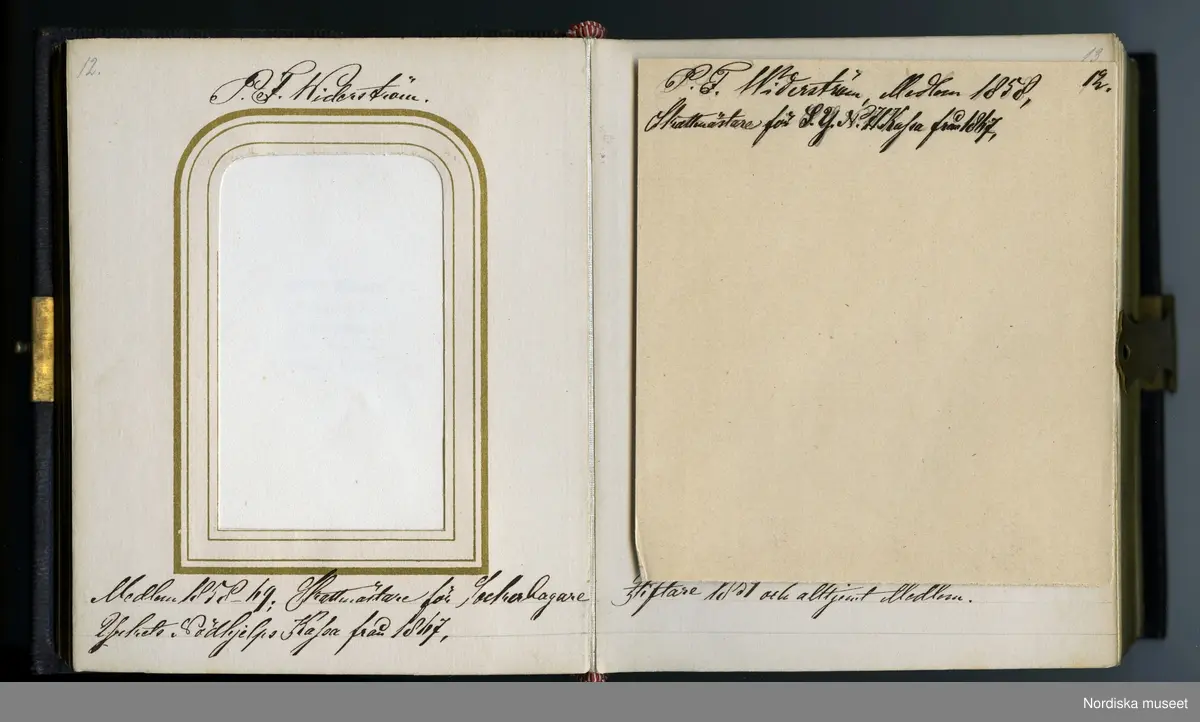 12.
P. F. Widerström.
Medlem 1858-69; Skattmästare för Sockerbagare
Yrkets Nödhjelps Kassa från 1867,
13
P. F. Widerström, Medlem 1858, 12.
Skattmästare för S. Y. N. H Kassa från 1867,
Stiftare 1851 och alltjemt Medlem.
Nordiska museet